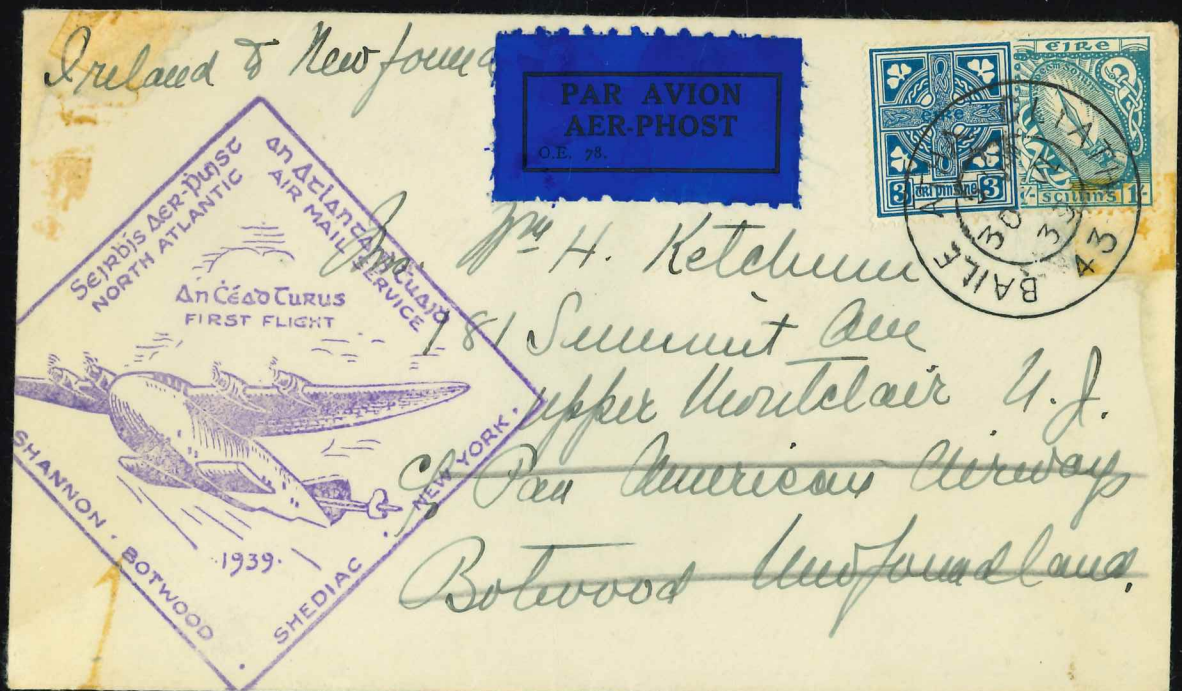 Ireland to Newfound
PAR AVION
AER-PHOST
O.E. 78.
3 trí pinginn 3
éire
scilling 1/-
BAILE ÁTHA CLIATH
30 39
43
Seirbís Aer-Phost
NORTH ATLANTIC
An Atlantaigh Thuaidh
AIR MAIL SERVICE
An Céad Turus
FIRST FLIGHT
SHANNON · BOTWOOD · SHEDIAC · NEW YORK ·
1939
Wm H. Ketchum
781 Summit Ave
Upper Montclair N.J.
c/o Pan American Airways
Botwood Newfoundland.